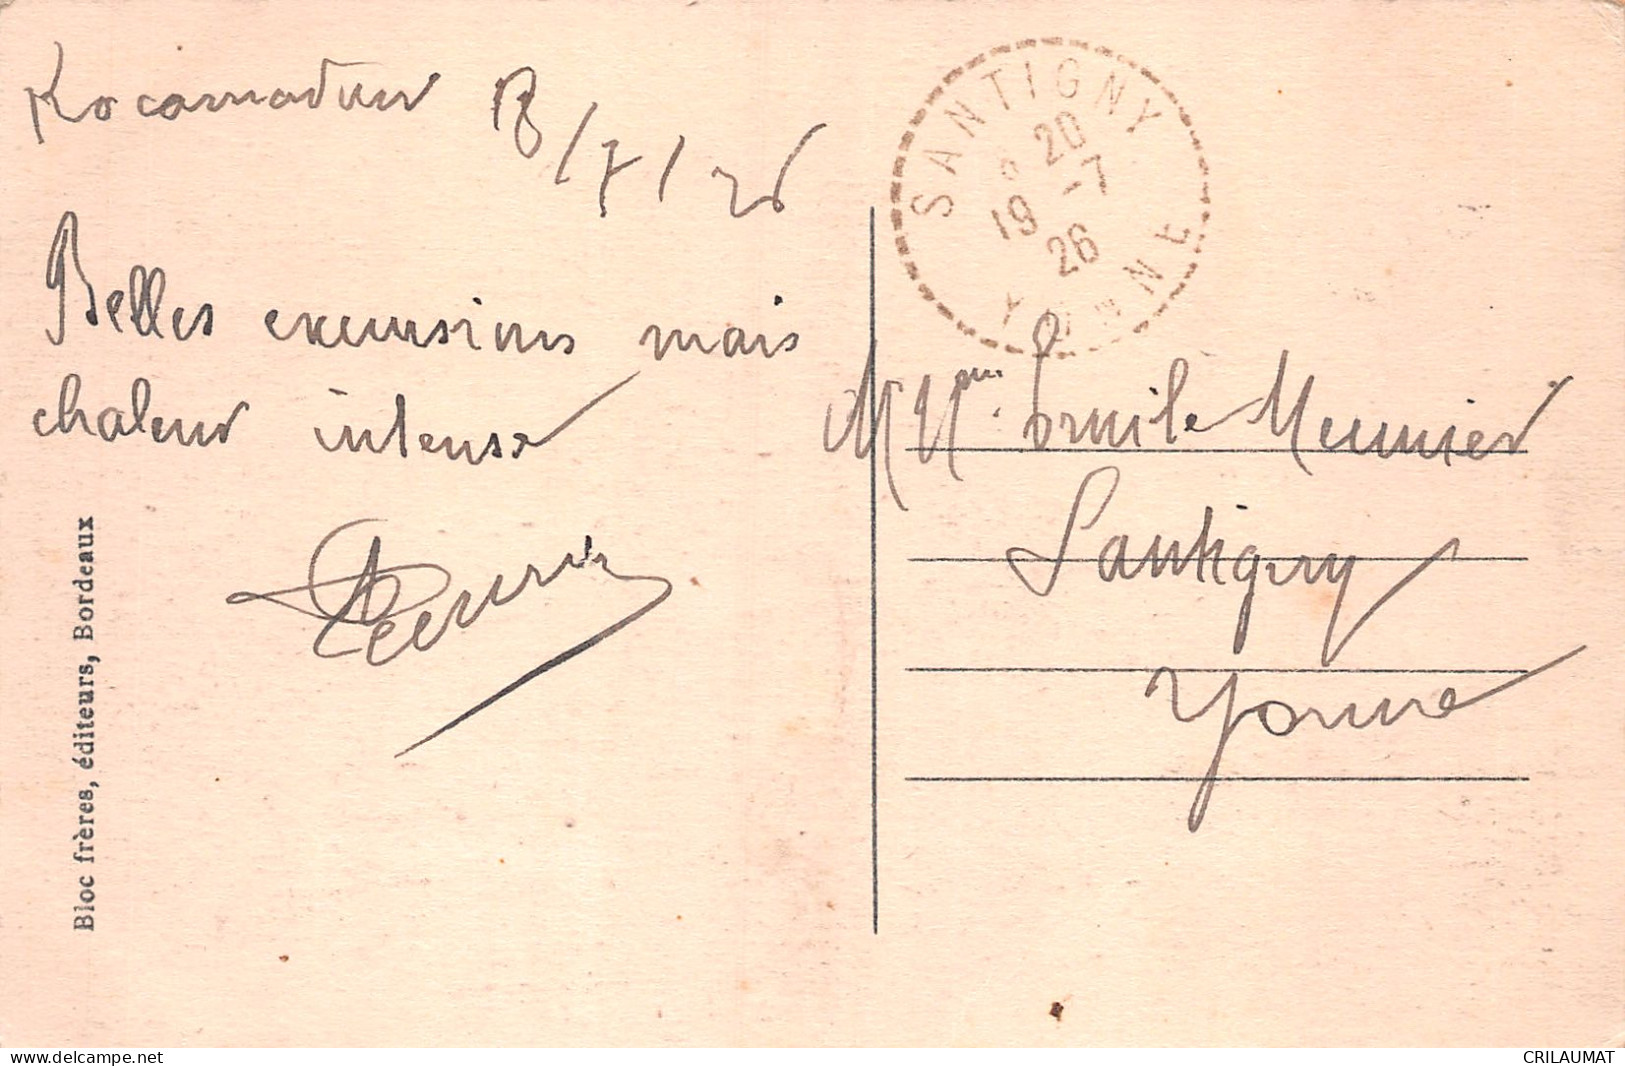 Rocamadour 18/7/26
Belles excursions mais
chaleur intense
SANTIGNY
20
19 -7
26
YONNE
M Mme Emile Meunier
Santigny
Yonne
Bloc frères, éditeurs, Bordeaux
www.delcampe.net
CRILAUMAT